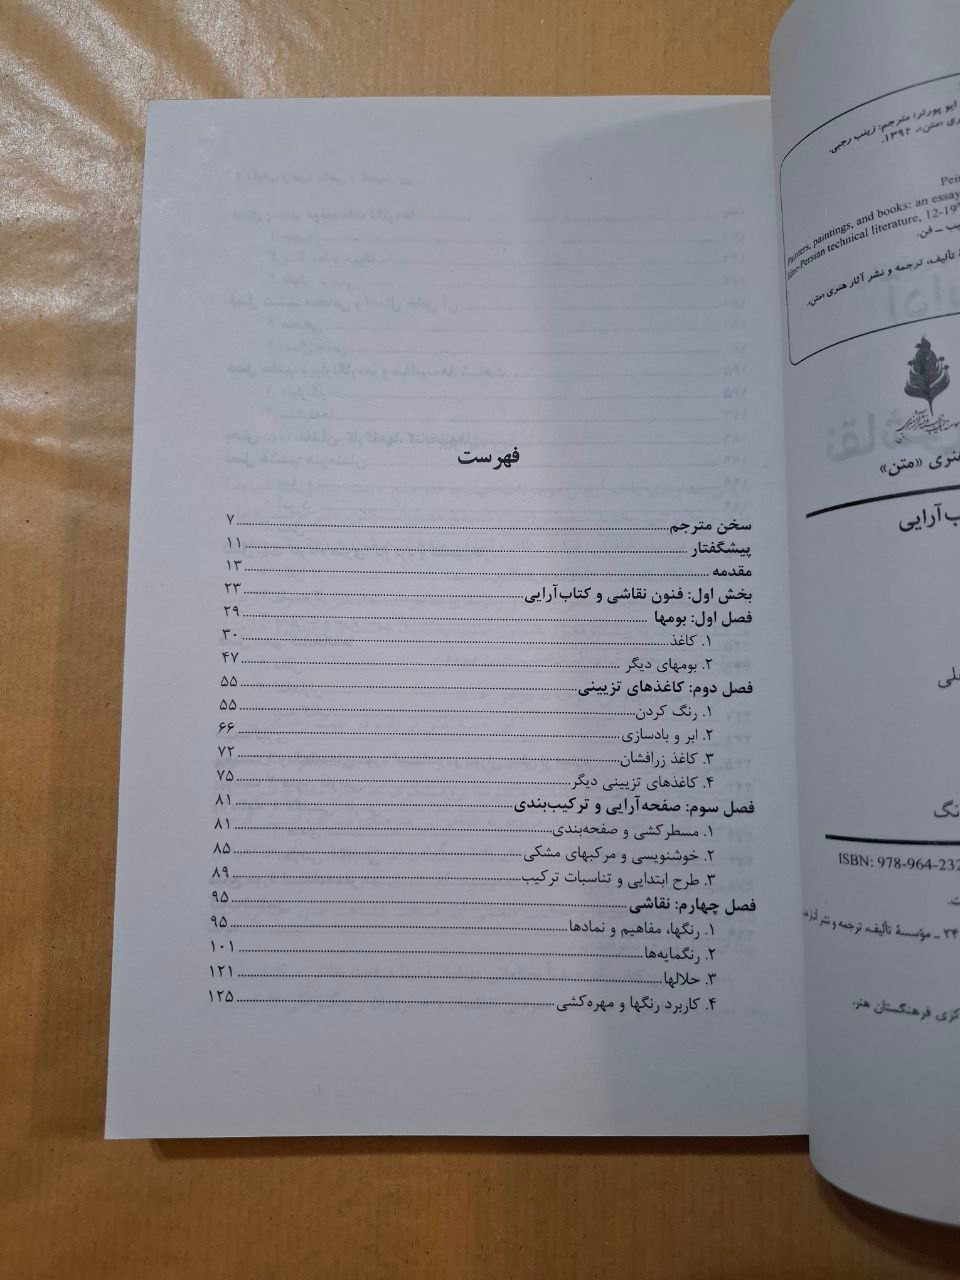 فهرست
سخن مترجم ۷
پیشگفتار ۱۱
مقدمه ۱۳
بخش اول: فنون نقاشی و کتاب‌آرایی ۲۳
فصل اول: بومها ۲۹
۱. کاغذ ۳۰
۲. بومهای دیگر ۴۷
فصل دوم: کاغذهای تزیینی ۵۵
۱. رنگ کردن ۵۵
۲. ابر و بادسازی ۶۶
۳. کاغذ زرافشان ۷۲
۴. کاغذهای تزیینی دیگر ۷۵
فصل سوم: صفحه‌آرایی و ترکیب‌بندی ۸۱
۱. مسطرکشی و صفحه‌بندی ۸۱
۲. خوشنویسی و مرکبهای مشکی ۸۵
۳. طرح ابتدایی و تناسبات ترکیب ۸۹
فصل چهارم: نقاشی ۹۵
۱. رنگها، مفاهیم و نمادها ۹۵
۲. رنگمایه‌ها ۱۰۱
۳. حلالها ۱۲۱
۴. کاربرد رنگها و مهره‌کشی ۱۲۵
ایو پورتر؛ مترجم: زینب رجبی.
«متن»، ۱۳۹۲.
Painters, paintings, and books: an essay
Indo-Persian technical literature, 12-19
تألیف، ترجمه و نشر آثار هنری «متن»،
هنری «متن»
ISBN: 978-964-232
۲۴ ـ مؤسسهٔ تألیف، ترجمه و نشر آثار
فرهنگستان هنر.